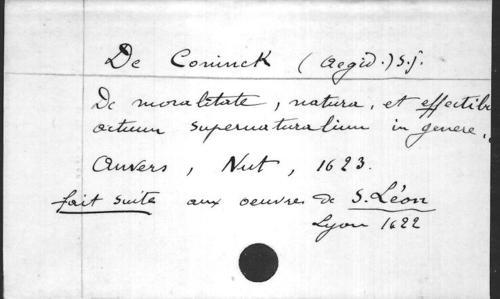 De Coninck (Aegid.) S.J.
De moralitate, natura, et effectib
actuum supernaturalium in genere.
Anvers, Nut, 1623.
fait suite aux oeuvres de S. Léon
Lyon 1622